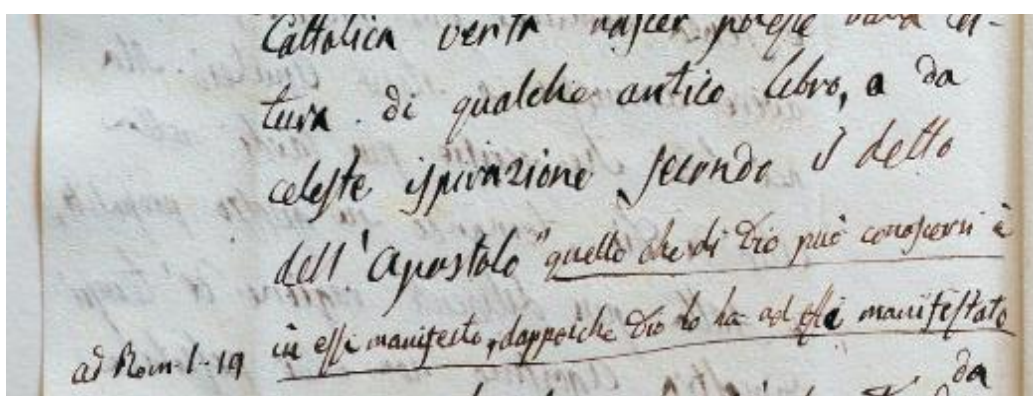 Cattolica verità nascer potesse da let-
tura di qualche antico libro, o da
celeste ispirazione secondo il detto
dell'Apostolo "quello che di Dio può conoscersi è
in essi manifesto, dappoiche Dio lo ha ad essi manifestato
ad Rom. 1. 19
da